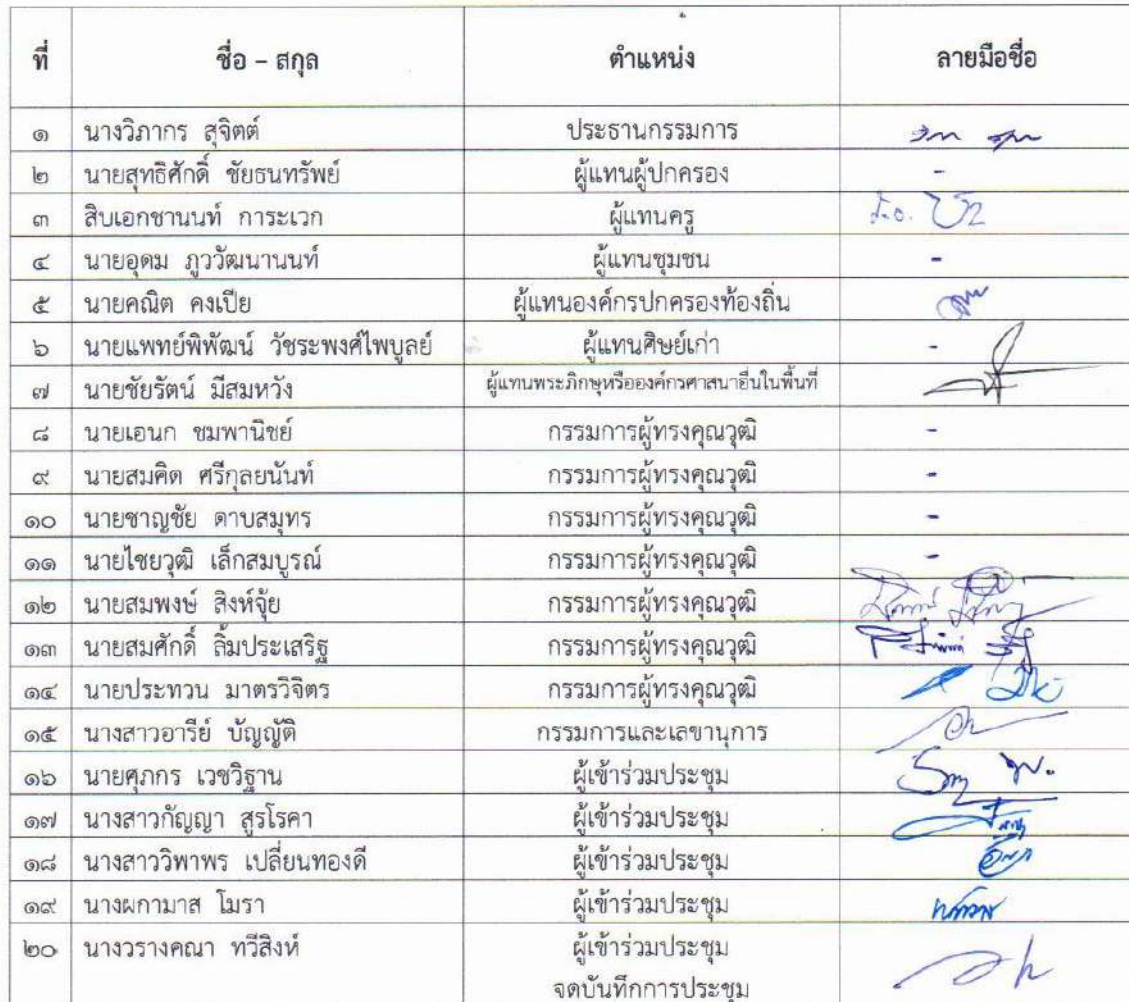 ที่ ชื่อ – สกุล ตำแหน่ง ลายมือชื่อ
๑ นางวิภากร สุจิตต์ ประธานกรรมการ
๒ นายสุทธิศักดิ์ ชัยธนทรัพย์ ผู้แทนผู้ปกครอง -
๓ สิบเอกชานนท์ การะเวก ผู้แทนครู
๔ นายอุดม ภูววัฒนานนท์ ผู้แทนชุมชน -
๕ นายคณิต คงเปีย ผู้แทนองค์กรปกครองท้องถิ่น
๖ นายแพทย์พิพัฒน์ วัชระพงศ์ไพบูลย์ ผู้แทนศิษย์เก่า -
๗ นายชัยรัตน์ มีสมหวัง ผู้แทนพระภิกษุหรือองค์กรศาสนาอื่นในพื้นที่
๘ นายเอนก ชมพานิชย์ กรรมการผู้ทรงคุณวุฒิ -
๙ นายสมคิต ศรีกุลยนันท์ กรรมการผู้ทรงคุณวุฒิ -
๑๐ นายชาญชัย ดาบสมุทร กรรมการผู้ทรงคุณวุฒิ -
๑๑ นายไชยวุฒิ เล็กสมบูรณ์ กรรมการผู้ทรงคุณวุฒิ -
๑๒ นายสมพงษ์ สิงห์จุ้ย กรรมการผู้ทรงคุณวุฒิ
๑๓ นายสมศักดิ์ ลิ้มประเสริฐ กรรมการผู้ทรงคุณวุฒิ
๑๔ นายประทวน มาตรวิจิตร กรรมการผู้ทรงคุณวุฒิ
๑๕ นางสาวอารีย์ บัญญัติ กรรมการและเลขานุการ
๑๖ นายศุภกร เวชวิฐาน ผู้เข้าร่วมประชุม
๑๗ นางสาวกัญญา สูรโรคา ผู้เข้าร่วมประชุม
๑๘ นางสาววิพาพร เปลี่ยนทองดี ผู้เข้าร่วมประชุม
๑๙ นางผกามาส โมรา ผู้เข้าร่วมประชุม
๒๐ นางวรางคณา ทวีสิงห์ ผู้เข้าร่วมประชุม
จดบันทึกการประชุม